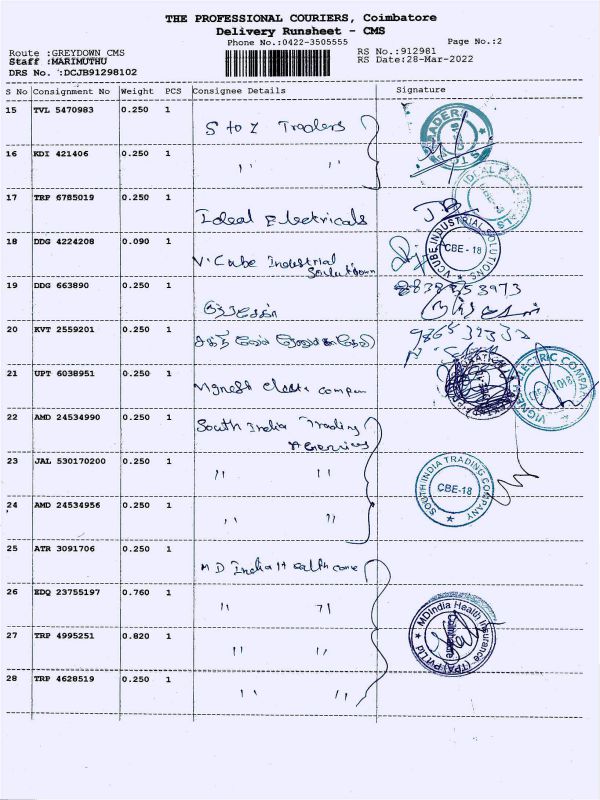 THE PROFESSIONAL COURIERS, Coimbatore
Delivery Runsheet - CMS
Phone No.:0422-3505555
Page No.:2
Route :GREYDOWN CMS
RS No.:912981
Staff :MARIMUTHU
RS Date:28-Mar-2022
DRS No. :DCJB91298102
S No Consignment No Weight PCS Consignee Details Signature
15 TVL 5470983 0.250 1 S to Z Traders
16 KDI 421406 0.250 1 '' ''
17 TRP 6785019 0.250 1 Ideal Electricals
18 DDG 4224208 0.090 1 V. Cube Industrial
VCUBE INDUSTRIAL SOLUTIONS CBE - 18
19 DDG 663890 0.250 1
20 KVT 2559201 0.250 1
21 UPT 6038951 0.250 1
ELECTRIC COMPANY
22 AMD 24534990 0.250 1 South India Trading
23 JAL 530170200 0.250 1 '' ''
SOUTH INDIA TRADING COMPANY CBE-18
24 AMD 24534956 0.250 1 '' ''
25 ATR 3091706 0.250 1 MD India Health care
26 EDQ 23755197 0.760 1 '' ''
MDIndia Health Insurance (TPA) Pvt Ltd Coimbatore
27 TRP 4995251 0.820 1 '' ''
28 TRP 4628519 0.250 1 '' ''